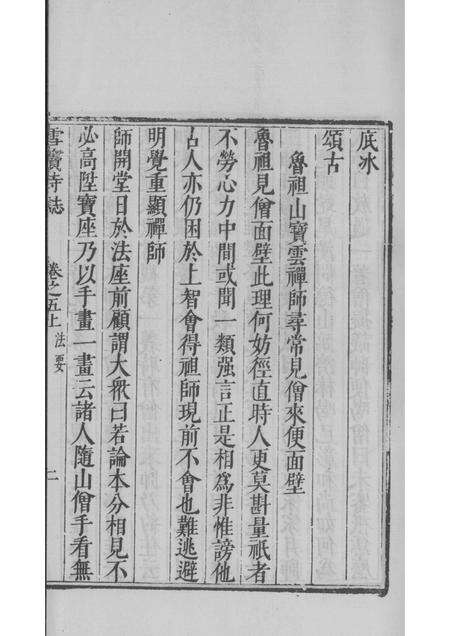 底冰
頌古
魯祖山寶雲禪師尋常見僧來便面壁
魯祖見僧面壁此理何妨徑直時人更莫斟量祇者
不勞心力中間或聞一類强言正是相為非惟謗他
古人亦仍困於上智會得祖師現前不會也難逃避
明覺重顯禪師
師開堂日於法座前顧謂大衆曰若論本分相見不
必高陞寶座乃以手畫一畫云諸人隨山僧手看無
雪竇寺誌 卷之五上 法要 一